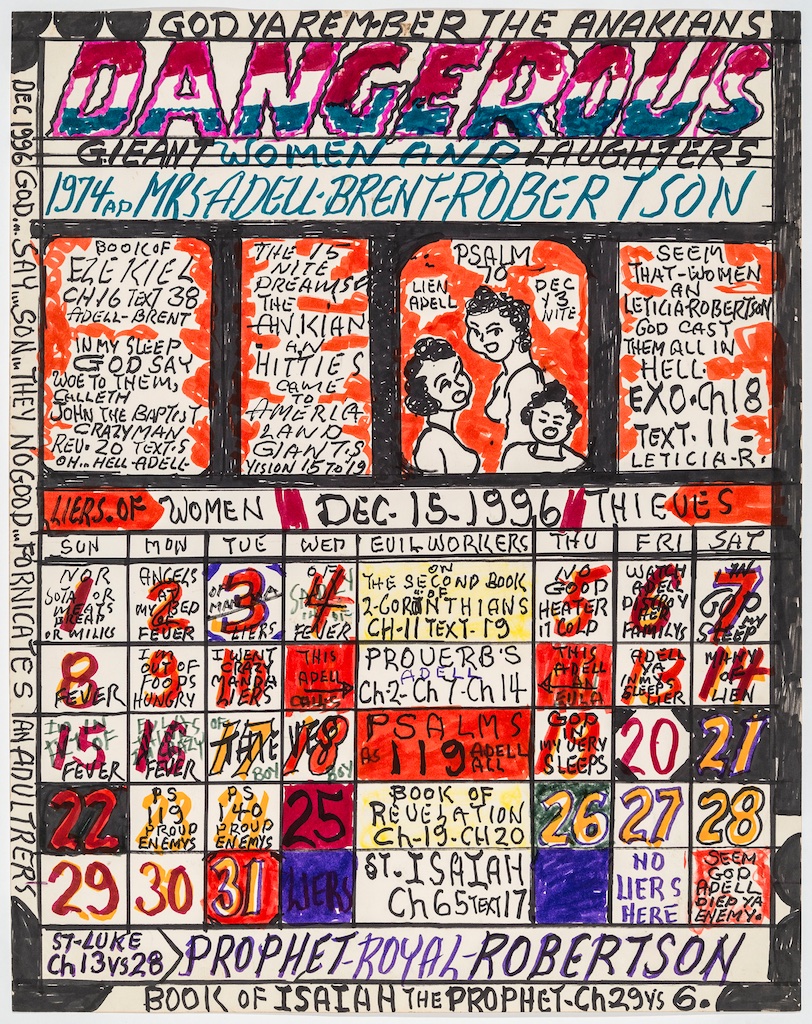 GOD YA REM-BER THE ANAKIANS
DANGEROUS
GIEANT WOMEN AND LAUGHTERS
1974 AD MRS-ADELL-BRENT-ROBERTSON
DEC 1996 GOD... SAY... SON... THEY NO GOOD... FORNICATE'S AN ADULTRERS
BOOK OF
EZEKIEL
CH 16 TEXT 38
ADELL-BRENT
IN MY SLEEP
GOD SAY
WOE TO THEM,
CALLETH
JOHN THE BAPTIST
CRAZY MAN
REV. 20 TEXT.S
OH... HELL-ADELL-
THE 15
NITE
DREAMS
THE
ANKIAN
AN
HITTIES
CAME
TO
AMERICA
LAND
GIANT.S
VISION 15 TO 19
PSALM
70
LIEN
ADELL
DEC
13
NITE
SEEM
THAT-WOMEN
AN
LETICIA-ROBERTSON
GOD CAST
THEM ALL IN
HELL.
EXO.Ch 18
TEXT. 11-
LETICIA-R.
LIERS. OF WOMEN DEC-15-1996 THIEVES
SUN MON TUE WED EVIL WORKERS THU FRI SAT
1 NOR
MEATS
BREAD
OR MILKS
2 ANGELS
AT
MY BED
OF
FEVER
3
LIERS
4 OF
FEVER
ON
THE SECOND BOOK
OF
2-CORINTHIANS
CH-11 TEXT-19
5 NO
GOOD
HEATER
IT COLD
6 WATCH
ADELL
DISTROY
THE
FAMILYS
7 IN
GOD
MY
SLEEP
8
FEVER
9 I'M
OUT OF
FOODS
HUNGRY
I WENT
CRAZY
MANDA
LIERS
THIS
ADELL
PROVERB'S
ADELL
Ch-2-Ch 7-Ch 14
THIS
ADELL
AN
EULA
13 ADELL
YA
IN MY
SLEEPS
LIER
14 MANY
OF
LIEN
15
FEVER
16
FEVER
17
BOY
18
BOY
PSALMS
AS 119 ADELL
ALL
GOD
IN
MY VERY
SLEEPS
20
21
22
PS
119
PROUD
ENEMYS
PS
140
PROUD
ENEMYS
25
BOOK OF
REVELATION
Ch-19-CH 20
26
27
28
29
30
31
LIERS
ST. ISAIAH
Ch 65 TEXT 17
NO
LIERS
HERE
SEEM
GOD
ADELL
DIED YA
ENEMY.
ST-LUKE
Ch 13 VS 28
PROPHET-ROYAL-ROBERTSON
BOOK OF ISAIAH THE PROPHET-Ch 29 VS 6.